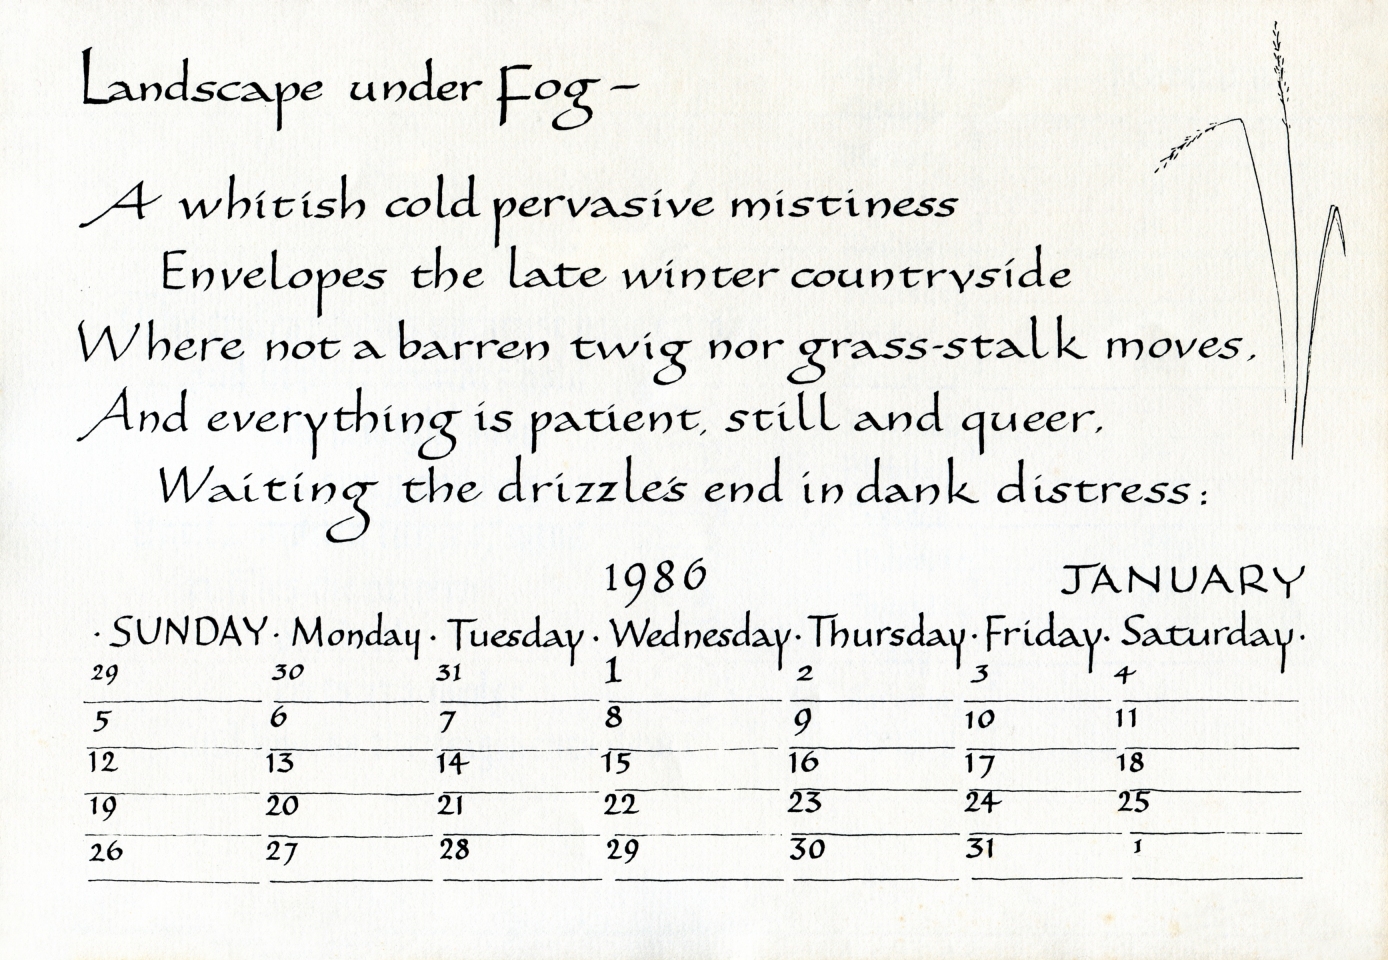 Landscape under Fog –
A whitish cold pervasive mistiness
Envelopes the late winter countryside
Where not a barren twig nor grass-stalk moves,
And everything is patient, still and queer,
Waiting the drizzle's end in dank distress:
1986 JANUARY
· SUNDAY · Monday · Tuesday · Wednesday · Thursday · Friday · Saturday ·
29 30 31 1 2 3 4
5 6 7 8 9 10 11
12 13 14 15 16 17 18
19 20 21 22 23 24 25
26 27 28 29 30 31 1